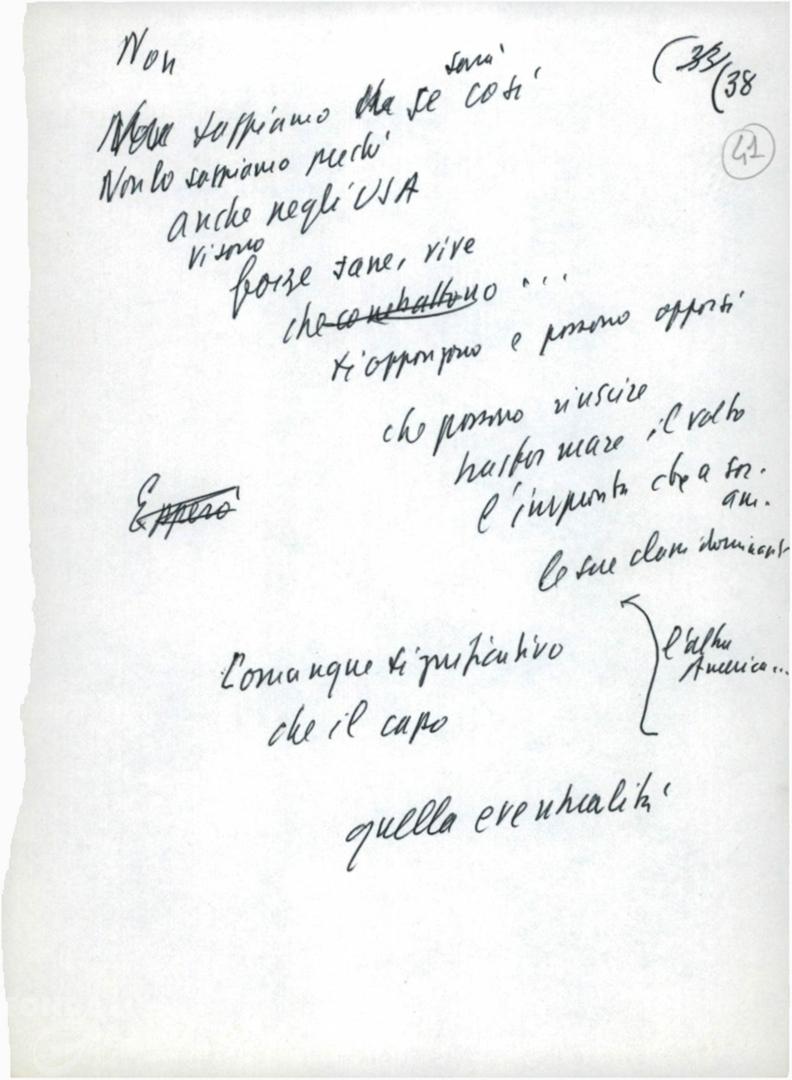 Non
(33
(38
41
sarà
Non sappiamo se così
Non lo sappiamo perché
anche negli USA
vi sono
forze sane, vive
che combattono ...
si oppongono e possono opporsi
che possono riuscire
trasformare il volto
l'impronta che a
am.
Epperò
le sue classi dominant
l'altra
America...
Comunque significativo
che il capo
quella eventualità